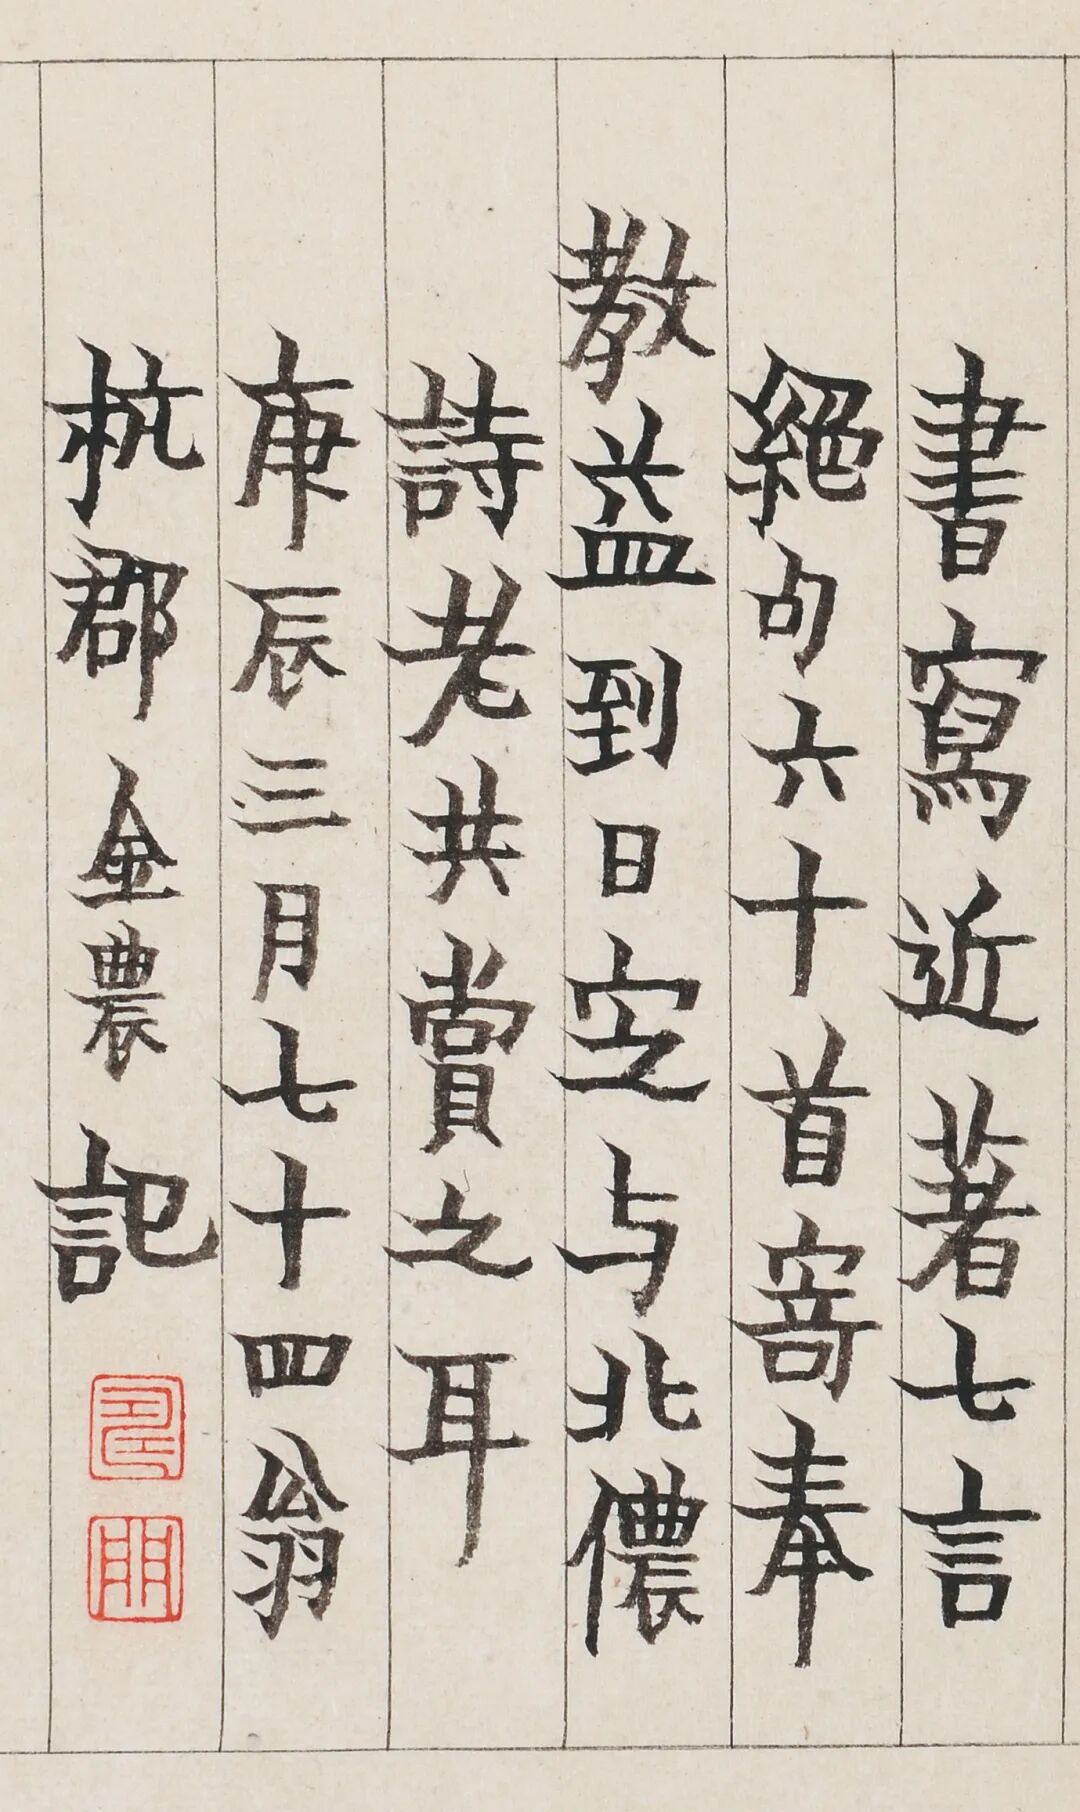 書寫近著七言
絕句六十首寄奉
教益到日定与北儂
詩老共賞之耳
庚辰三月七十四翁
杭郡金農記